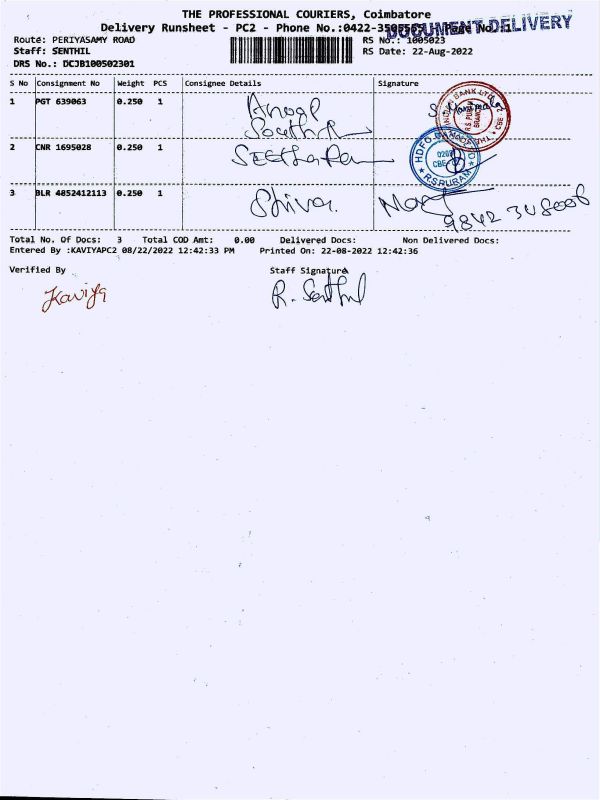 THE PROFESSIONAL COURIERS, Coimbatore
Delivery Runsheet - PC2 - Phone No.:0422-3505565 Page No.:1
DOCUMENT DELIVERY
Route: PERIYASAMY ROAD
RS No.: 1005023
Staff: SENTHIL
RS Date: 22-Aug-2022
DRS No.: DCJB100502301
S No Consignment No Weight PCS Consignee Details Signature
1 PGT 639063 0.250 1
2 CNR 1695028 0.250 1
HDFC BANK
R.S PURAM
3 BLR 4852412113 0.250 1 Shiva.
Total No. Of Docs: 3 Total COD Amt: 0.00 Delivered Docs: Non Delivered Docs:
Entered By :KAVIYAPC2 08/22/2022 12:42:33 PM Printed On: 22-08-2022 12:42:36
Verified By Staff Signature
Kaviya R. Senthil